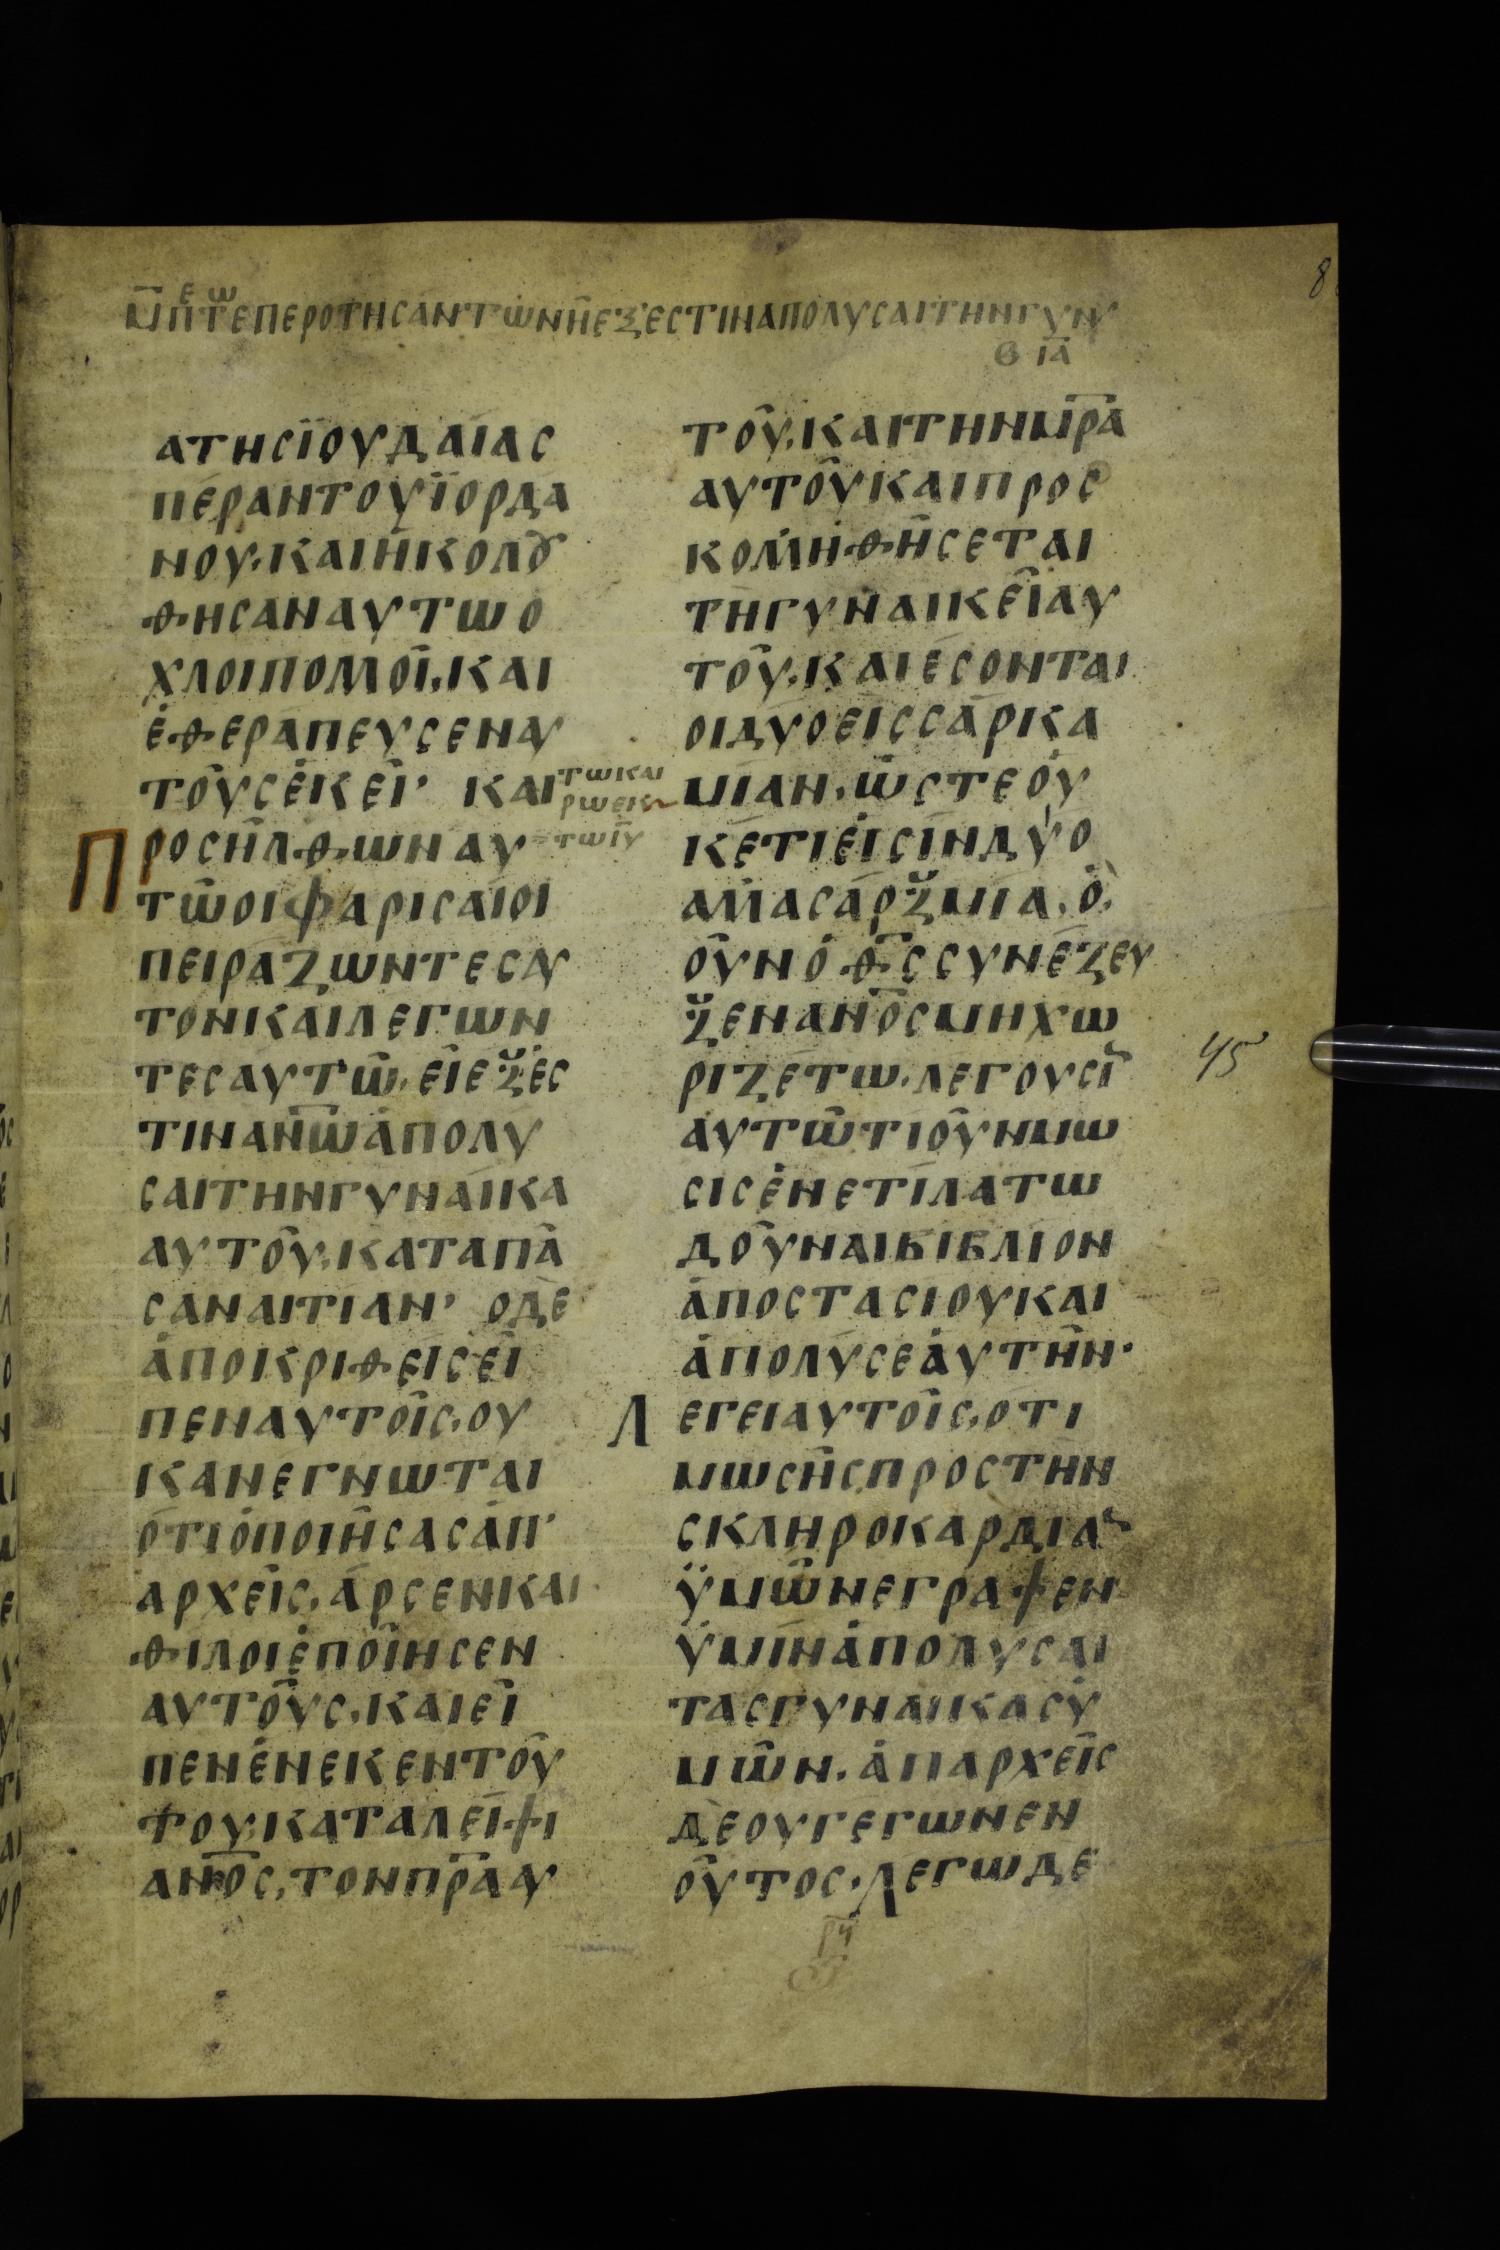 Μ̅Π̅Τ̅ΕΠΕΡΟΤΗΣΑΝΤΩΝΗΕΞΕΣΤΙΝΑΠΟΛΥΣΑΙΤΗΝΓΥΝ
Θ ΙΑ
ΑΤΗΣΪΟΥΔΑΙΑΣ
ΠΕΡΑΝΤΟΥΪΟΡΔΑ
ΝΟΥ. ΚΑΙΗΚΟΛȢ
ΘΗΣΑΝΑΥΤΩΟ
ΧΛΟΙΠΟΛΛΟΙ. ΚΑΙ
ΕΘΕΡΑΠΕΥΣΕΝΑΥ
ΤΟΥΣΕΚΕΙ· ΚΑΙ
ΤΩΚΑΙ
ΡΩΕΙΚ
ΤΩΙΥ
ΠΡΟΣΗΛΘΩΝΑΥ
ΤΩΟΙΦΑΡΙΣΑΙΟΙ
ΠΕΙΡΑΖΩΝΤΕΣΑΥ
ΤΟΝΚΑΙΛΕΓΩΝ
ΤΕΣΑΥΤΩ. ΕΙΕΞΕΣ
ΤΙΝΑΝ̅Ω̅ΑΠΟΛΥ
ΣΑΙΤΗΝΓΥΝΑΙΚΑ
ΑΥΤΟΥ. ΚΑΤΑΠΑ
ΣΑΝΑΙΤΙΑΝ· ΟΔΕ
ΑΠΟΚΡΙΘΕΙΣΕΙ
ΠΕΝΑΥΤΟΙΣ. ΟΥ
ΚΑΝΕΓΝΩΤΑΙ
ΟΤΙΟΠΟΙΗΣΑΣΑΠ'
ΑΡΧΕΙΣ. ΑΡΣΕΝΚΑΙ
ΘΙΛΟΙΕΠΟΙΗΣΕΝ
ΑΥΤΟΥΣ. ΚΑΙΕΙ
ΠΕΝΕΝΕΚΕΝΤΟΥ
ΤΟΥ. ΚΑΤΑΛΕΙΨΙ
ΑΝ̅Ο̅Σ, ΤΟΝΠ̅Ρ̅ΑΑΥ
ΤΟΥ. ΚΑΙΤΗΝΜ̅Ρ̅Α
ΑΥΤΟΥΚΑΙΠΡΟΣ
ΚΟΛΛΗΘΗΣΕΤΑΙ
ΤΗΓΥΝΑΙΚΕΙΑΥ
ΤΟΥ. ΚΑΙΕΣΟΝΤΑΙ
ΟΙΔΥΟΕΙΣΣΑΡΚΑ
ΜΙΑΝ. ΩΣΤΕΟΥ
ΚΕΤΙΕΙΣΙΝΔΥΟ
ΑΛΛΑΣΑΡΞΜΙΑ. Ο
ΟΥΝΟΘ̅ΣΣΥΝΕΖΕΥ
ΞΕΝΑΝ̅Ο̅ΣΜΗΧΩ
ΡΙΖΕΤΩ. ΛΕΓΟΥΣΙ
ΑΥΤΩΤΙΟΥΝΜΩ
ΣΙΣΕΝΕΤΙΛΑΤΩ
ΔΟΥΝΑΙΒΙΒΛΙΟΝ
ΑΠΟΣΤΑΣΙΟΥΚΑΙ
ΑΠΟΛΥΣΕΑΥΤΗΝ·
ΛΕΓΕΙΑΥΤΟΙΣ. ΟΤΙ
ΜΩΣΗΣΠΡΟΣΤΗΝ
ΣΚΛΗΡΟΚΑΡΔΙΑΝ
ΫΜΩΝΕΓΡΑΨΕΝ
ΥΜΙΝΑΠΟΛΥΣΑΙ
ΤΑΣΓΥΝΑΙΚΑΣΥ
ΜΩΝ. ΑΠΑΡΧΕΙΣ
ΔΕΟΥΓΕΓΩΝΕΝ
ΟΥΤΟΣ. ΛΕΓΩΔΕ
45
8